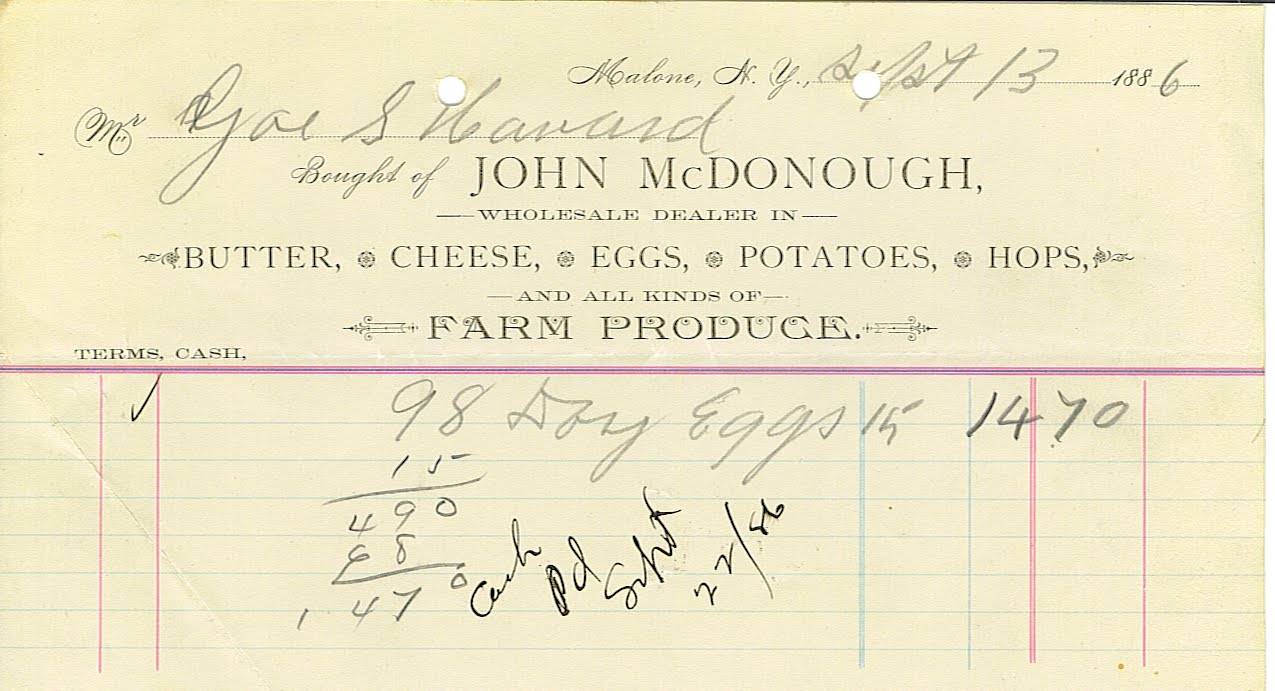 Malone, N. Y., Sept 13 1886
Mr Joe S Havard
Bought of JOHN McDONOUGH,
WHOLESALE DEALER IN
BUTTER, CHEESE, EGGS, POTATOES, HOPS,
AND ALL KINDS OF
FARM PRODUCE.
TERMS, CASH,
✓ 98 Doz Eggs 15 14 70
15
490
98
1470
Cash
Pd
Sept
22/86